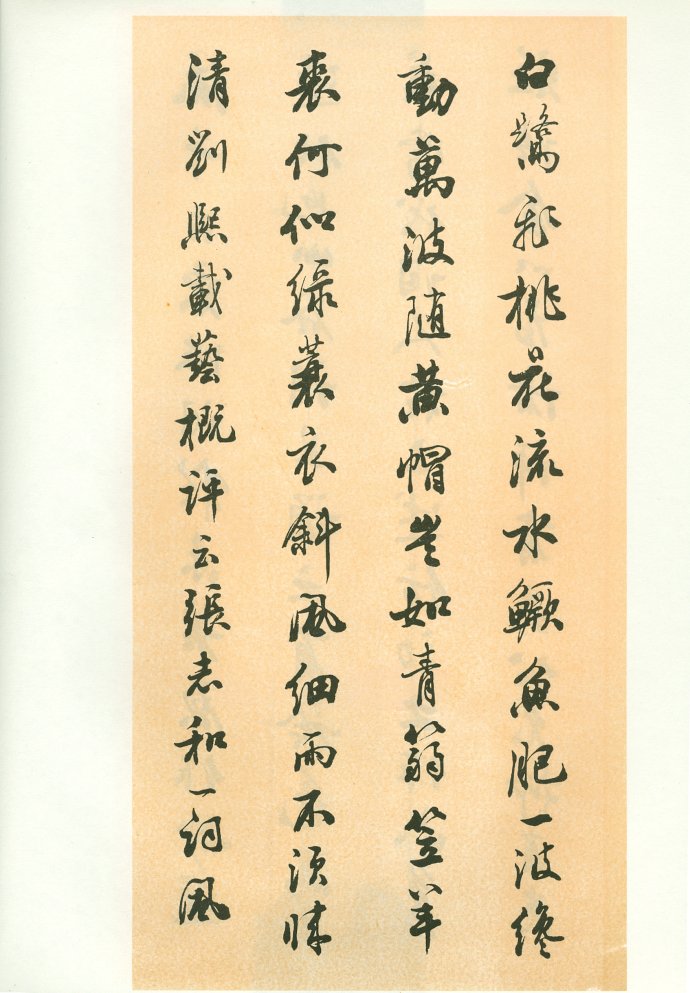 白鷺飛桃花流水鱖魚肥一波纔
動萬波随黃帽豈如青篛笠羊
裘何似綠蓑衣斜風細雨不須歸
清劉熙載藝概評云張志和一詞風